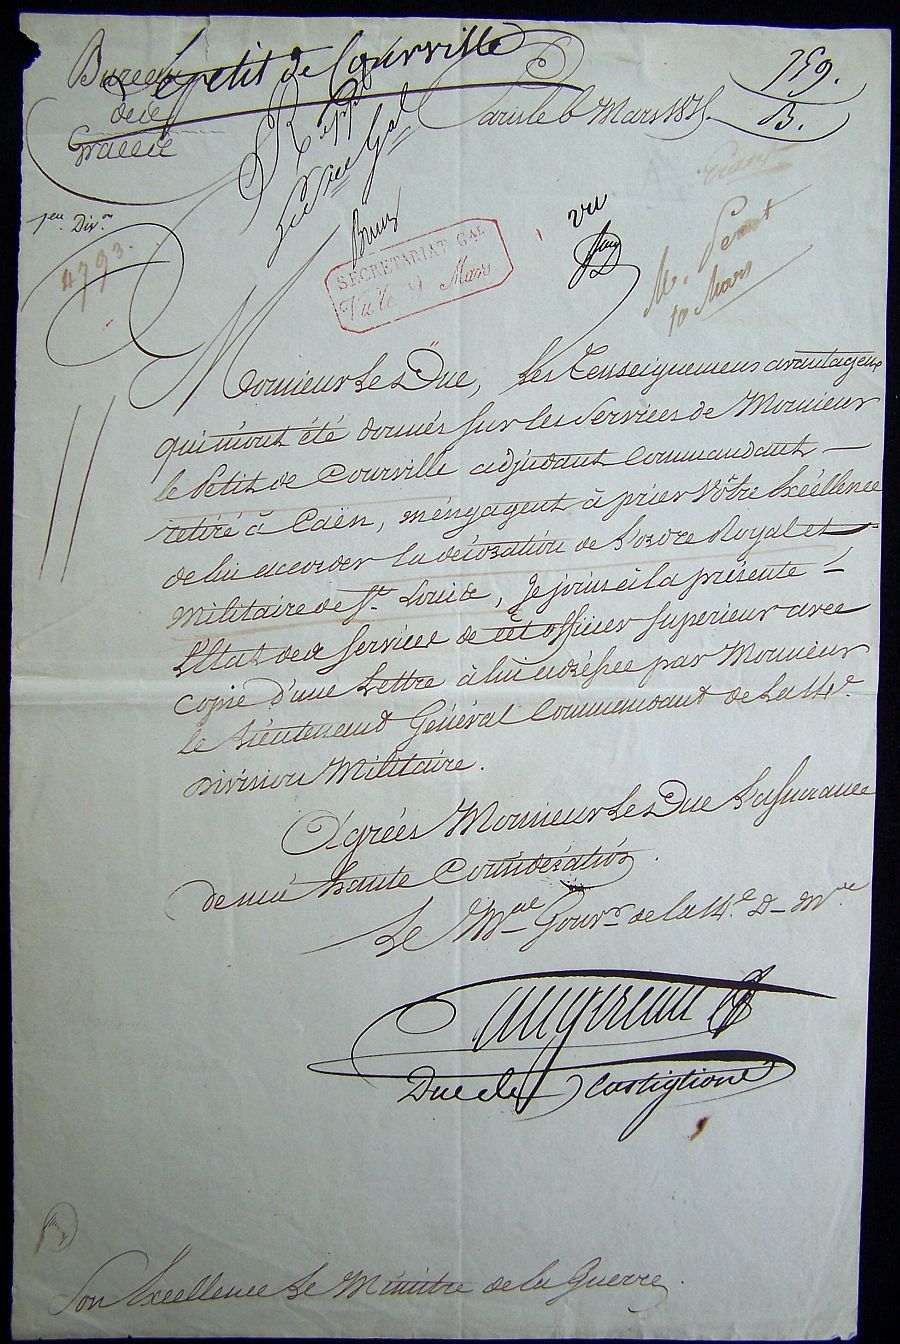 Lepetit de Courville
Bureau
de la
Guerre
Paris le 6 Mars 1815.
159.
B.
1ere Div.on
4793.
SECRETARIAT GAL
9 Mars
vu
10 Mars
Monsieur Le Duc, Les Renseignemens avantageux
qui m'ont été donnés sur les Services de Monsieur
le Petit de Courville adjudant Commandant
retiré à Caën, m'engagent à prier Vôtre Excéllence
de lui accorder la décoration de L'ordre Royal et
Militaire de St. Louis, Je joins ici la présente
L'Etat des Services de cet officier Superieur avec
copie d'une Lettre à lui adréssée par Monsieur
le Lieutenant Général Commandant de La 14e.
Division Militaire.
Agrées Monsieur Le Duc L'assurance
de ma haute Considération.
Le Mal Gouvr de la 14e. D– Mre.
Augereau
Duc de Castiglione
Son Excellence Le Ministre de la Guerre.